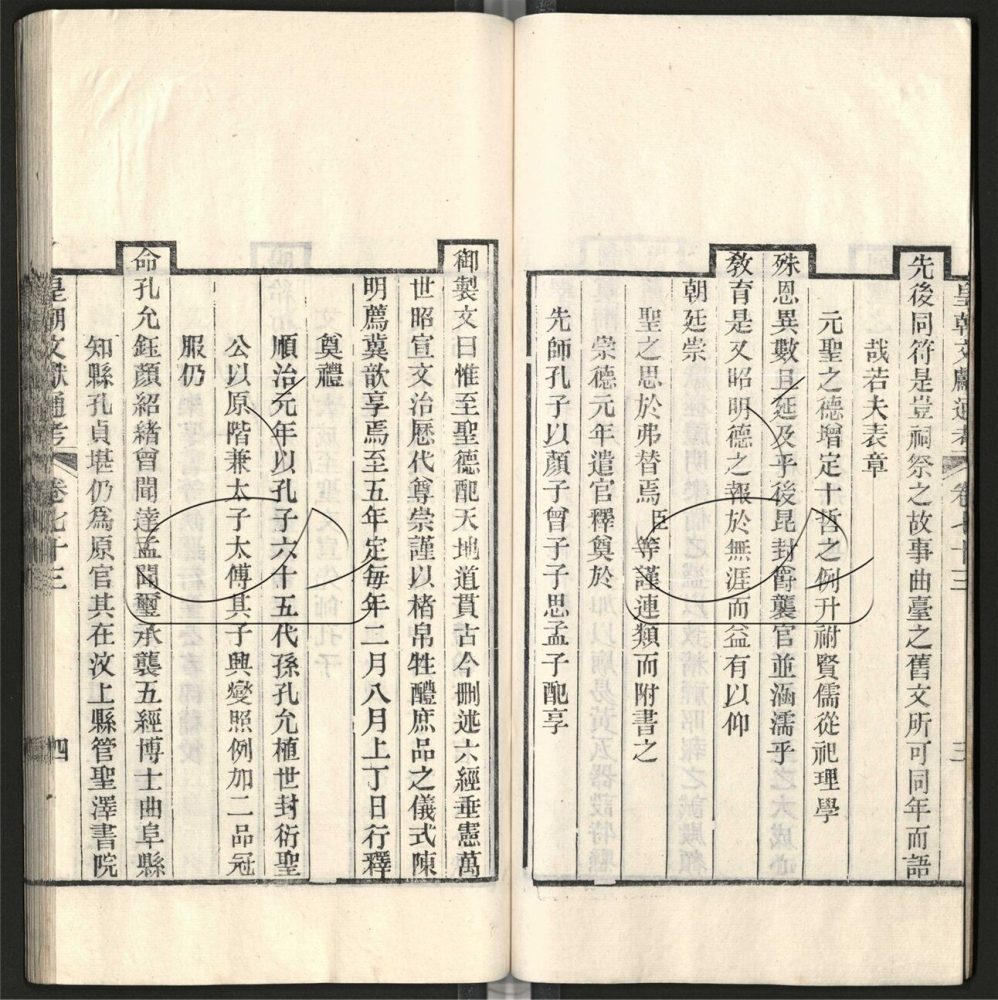 皇朝文獻通考 卷七十三 三
先後同符是豈祠祭之故事曲臺之舊文所可同年而語
哉若夫表章
元聖之德增定十哲之例升祔賢儒從祀理學
殊恩異數且延及乎後昆封爵襲官並涵濡乎
敎育是又昭明德之報於無涯而益有以仰
朝廷崇
聖之思於弗替焉臣等謹連類而附書之
崇德元年遣官釋奠於
先師孔子以顏子曾子子思孟子配享
御製文曰惟至聖德配天地道貫古今刪述六經垂憲萬
世昭宣文治歷代尊崇謹以楮帛牲醴庶品之儀式陳
明薦冀歆享焉至五年定每年二月八月上丁日行釋
奠禮
順治元年以孔子六十五代孫孔允植世封衍聖
公以原階兼太子太傅其子興燮照例加二品冠
服仍
命孔允鈺顏紹緒曾聞達孟聞璽承襲五經博士曲阜縣
知縣孔貞堪仍爲原官其在汶上縣管聖澤書院
皇朝文獻通考 卷七十三 四